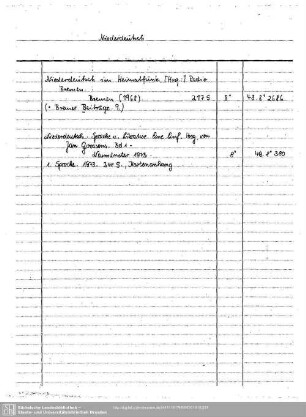 Niederdeutsch
Niederdeutsch im Heimatfunk. [Hrsg.:] Radio
Bremen.
Bremen (1968). 217 S. 8° 43. 8° 2686
(= Bremer Beiträge 9.)
Niederdeutsch. Sprache u. Literatur. Eine Einf. Hrsg. von
Jan Goossens. Bd 1-
Neumünster 1973- 8° 48. 8° 380
1. Sprache. 1973. S., Kartenanhang
Sächsische Landesbibliothek -
Staats- und Universitätsbibliothek Dresden